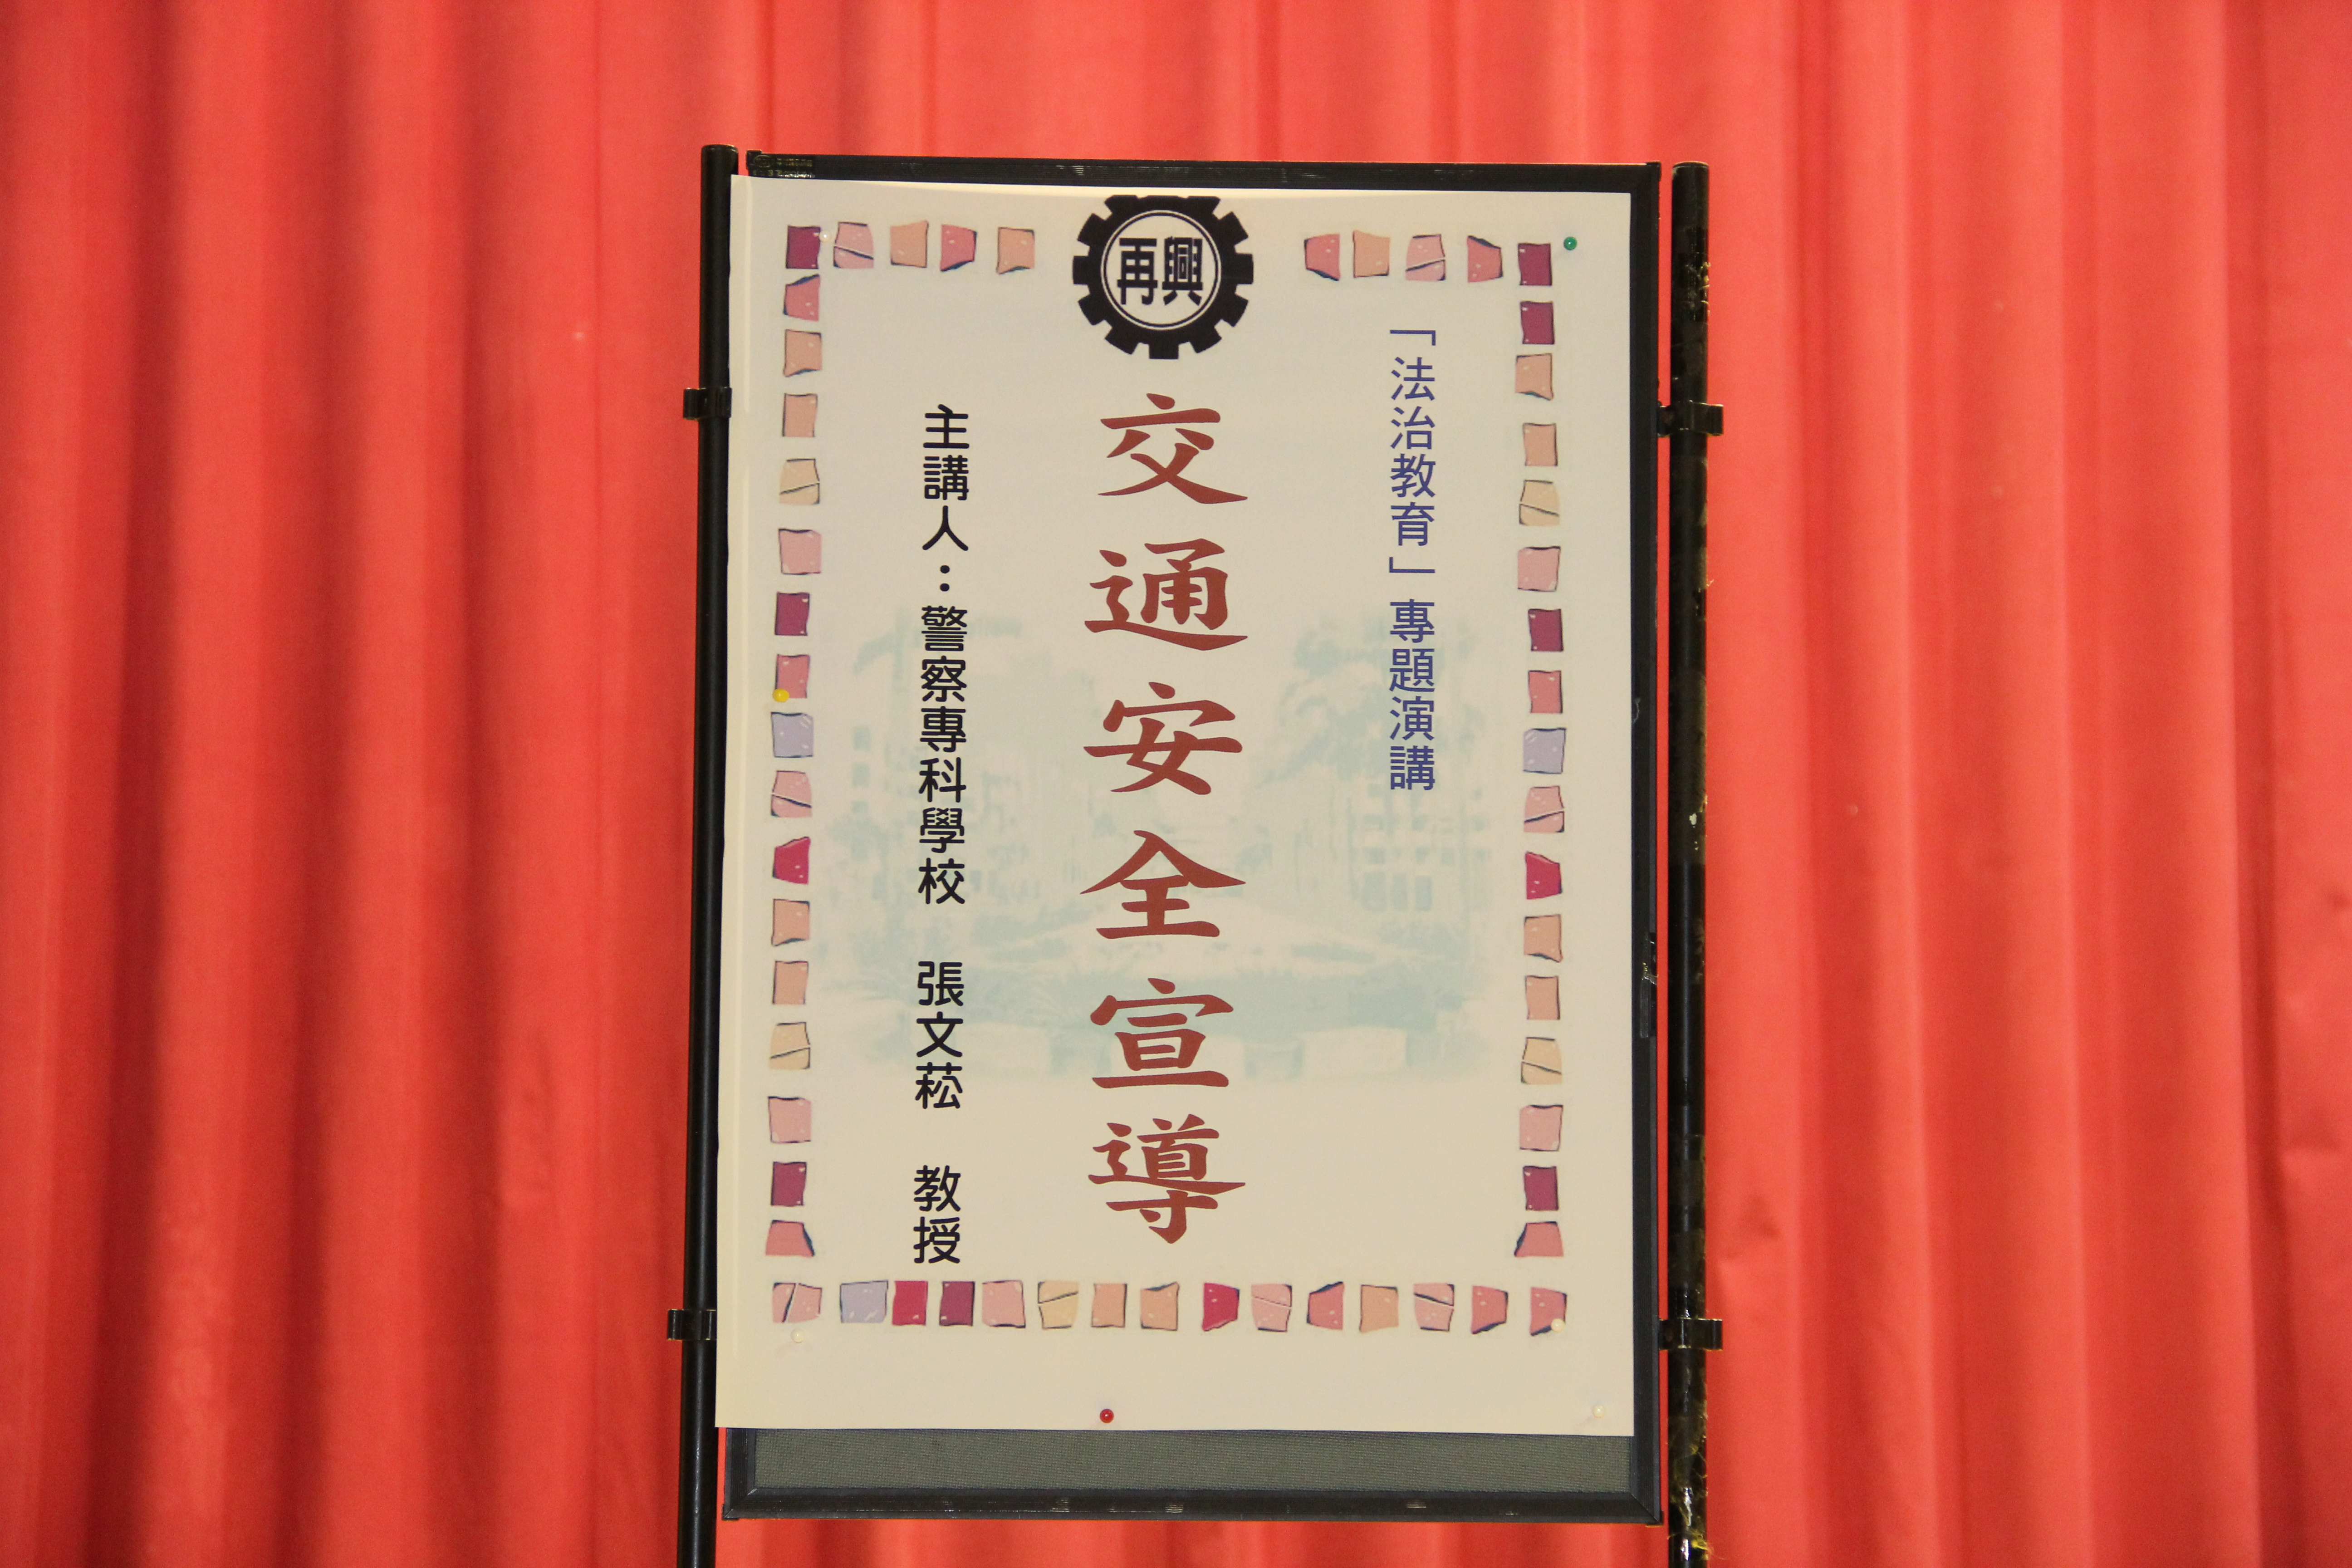 再興
「法治教育」專題演講
交通安全宣導
主講人：警察專科學校　張文菘　教授